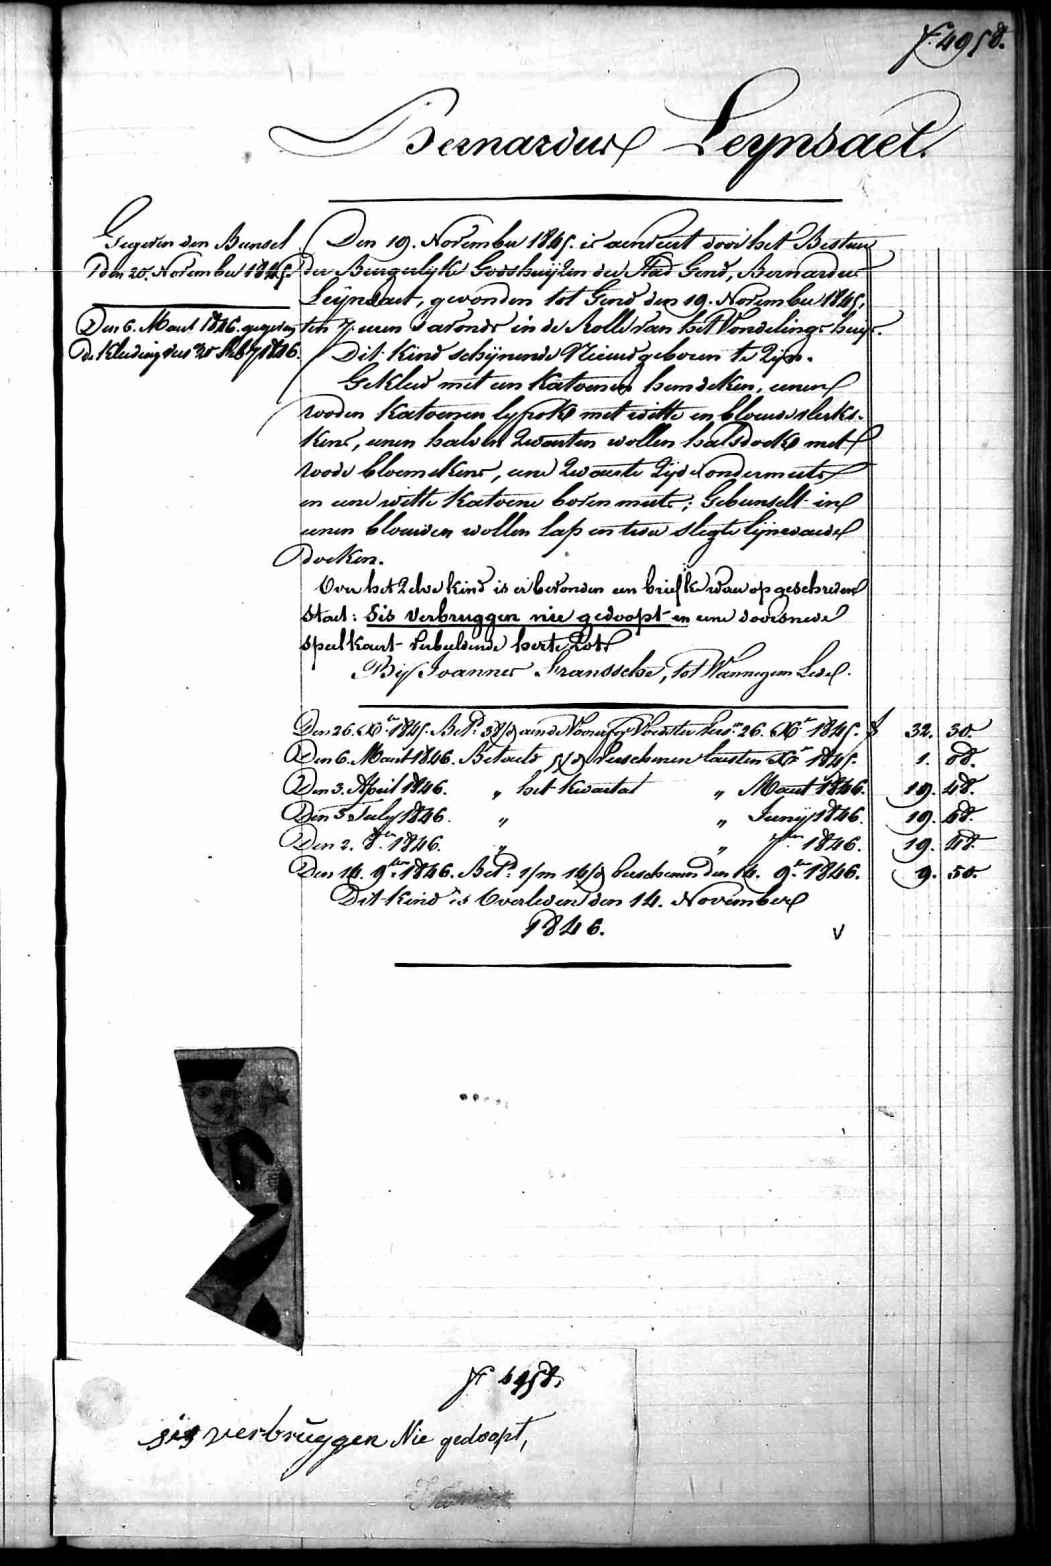 f. 4958.
Bernardus Leÿnsaet.
Gegeven den Bunsel
den 20. November 1845.
Den 6. Maart 1846. gegeven
de Kleeding
Den 19. November 1845. is aenveert door het Bestuur
der Burgerlyke Godshuyzen der Stad Gend, Bernardus
Leÿnsaet, gevonden tot Gend den 19. November 1845,
ten 7. uren s'avonds in de Rolle van het Vondelings-huys.
Dit Kind schynende Nieuwgeboren te Zyn.
Gekleed met een Katoenen hemdeken, eenen
rooden Katoenen lyfrok met witte en blouwe
kens, eenen halven Zwarten wollen halsdoek met
roode bloemekens, eene Zwarte Zyde ondermuts
en eene witte Katoene boven muts; Gebunselt in
eenen blouwen wollen lap en twee slegte lynwaede
doeken.
Over het Zelve kind is er bevonden een briefke waer op geschreven
staet: Sis Verbruggen nie gedoopt en eene doorsnede
speelkaart verbeeldende herte Zot
Bij Joannes Franssche, tot Wannegem Lede.
Den 26. Xber 1845. Bet.d 26. Xber 1845. f 32. 50.
Den 6. Maart 1846. Betaeld verschenen laesten Xber 1845. 1. 08.
Den 3. April 1846. " het Kwartael " Maart 1846. 19. 48.
Den 3. July 1846. " " Junij 1846. 19. 48.
Den 2. 8ber 1846. " " 7ber 1846. 19. 48.
Den 14. 9ber 1846. Bet.d 1/m 14/d verschenen den 14. 9ber 1846. 9. 50.
Dit Kind is Overleden den 14. November
1846. V
f 4958.
sis verbrŭggen Nie gedoopt,